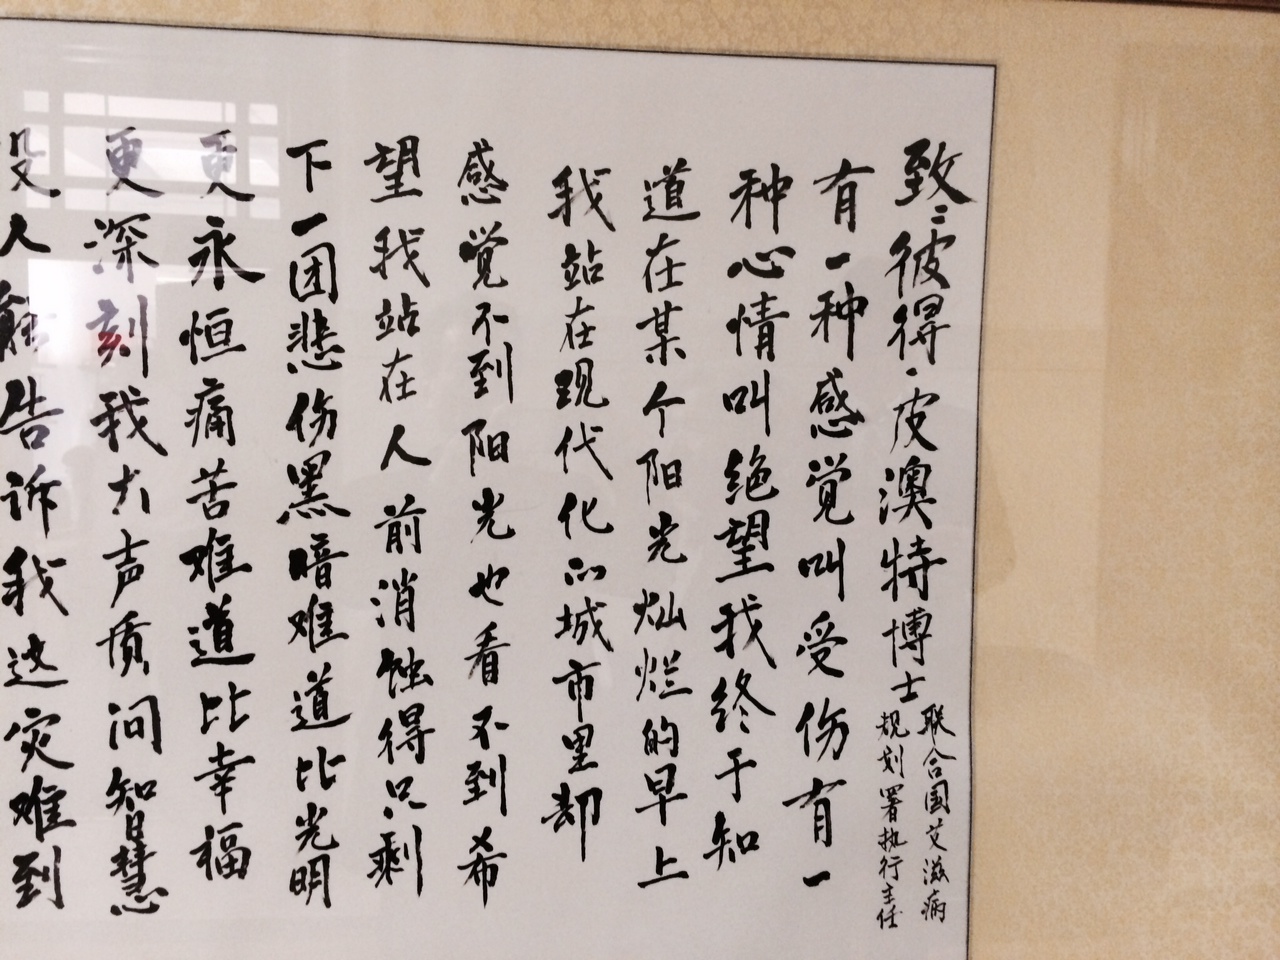 致：彼得·皮澳特博士
联合国艾滋病
规划署执行主任
有一种感觉叫受伤有一
种心情叫绝望我终于知
道在某个阳光灿烂的早上
我站在现代化的城市里却
感觉不到阳光也看不到希
望我站在人前消蚀得只剩
下一团悲伤黑暗难道比光明
更永恒痛苦难道比幸福
更深刻我大声质问智慧
没人能告诉我这灾难到